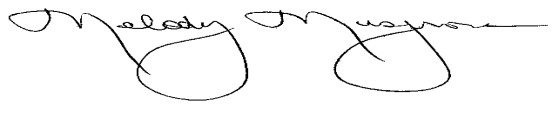 Melody Musgrove